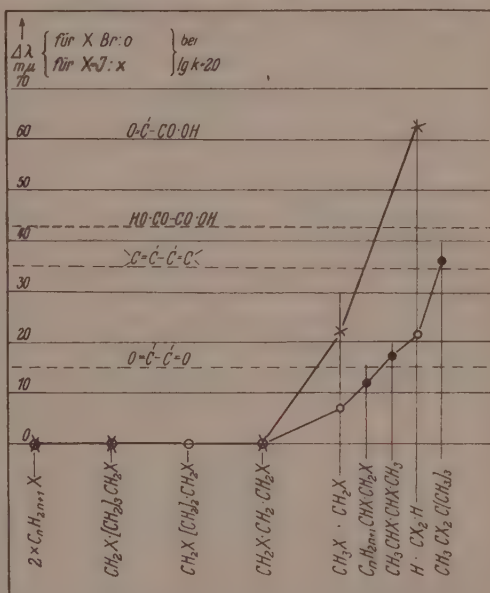 Δλ
mμ
für X Br: o
für X=J: x
bei
lg k=2,0
70
60
O=Ć-CO·OH
50
HO·CO-CO·OH
40
>C=Ć-Ć=C<
30
20
O=Ć-Ć=O
10
0
2×CnH2n+1 X
CH2X·[CH2]3 CH2X
CH2X [CH2]2·CH2X
CH2X·CH2·CH2X
CH3X · CH2X
CnH2n+1 CHX CH2X
CH3 CHX·CHX CH3
H · CX2·H
CH3 CX2 C(CH3)3